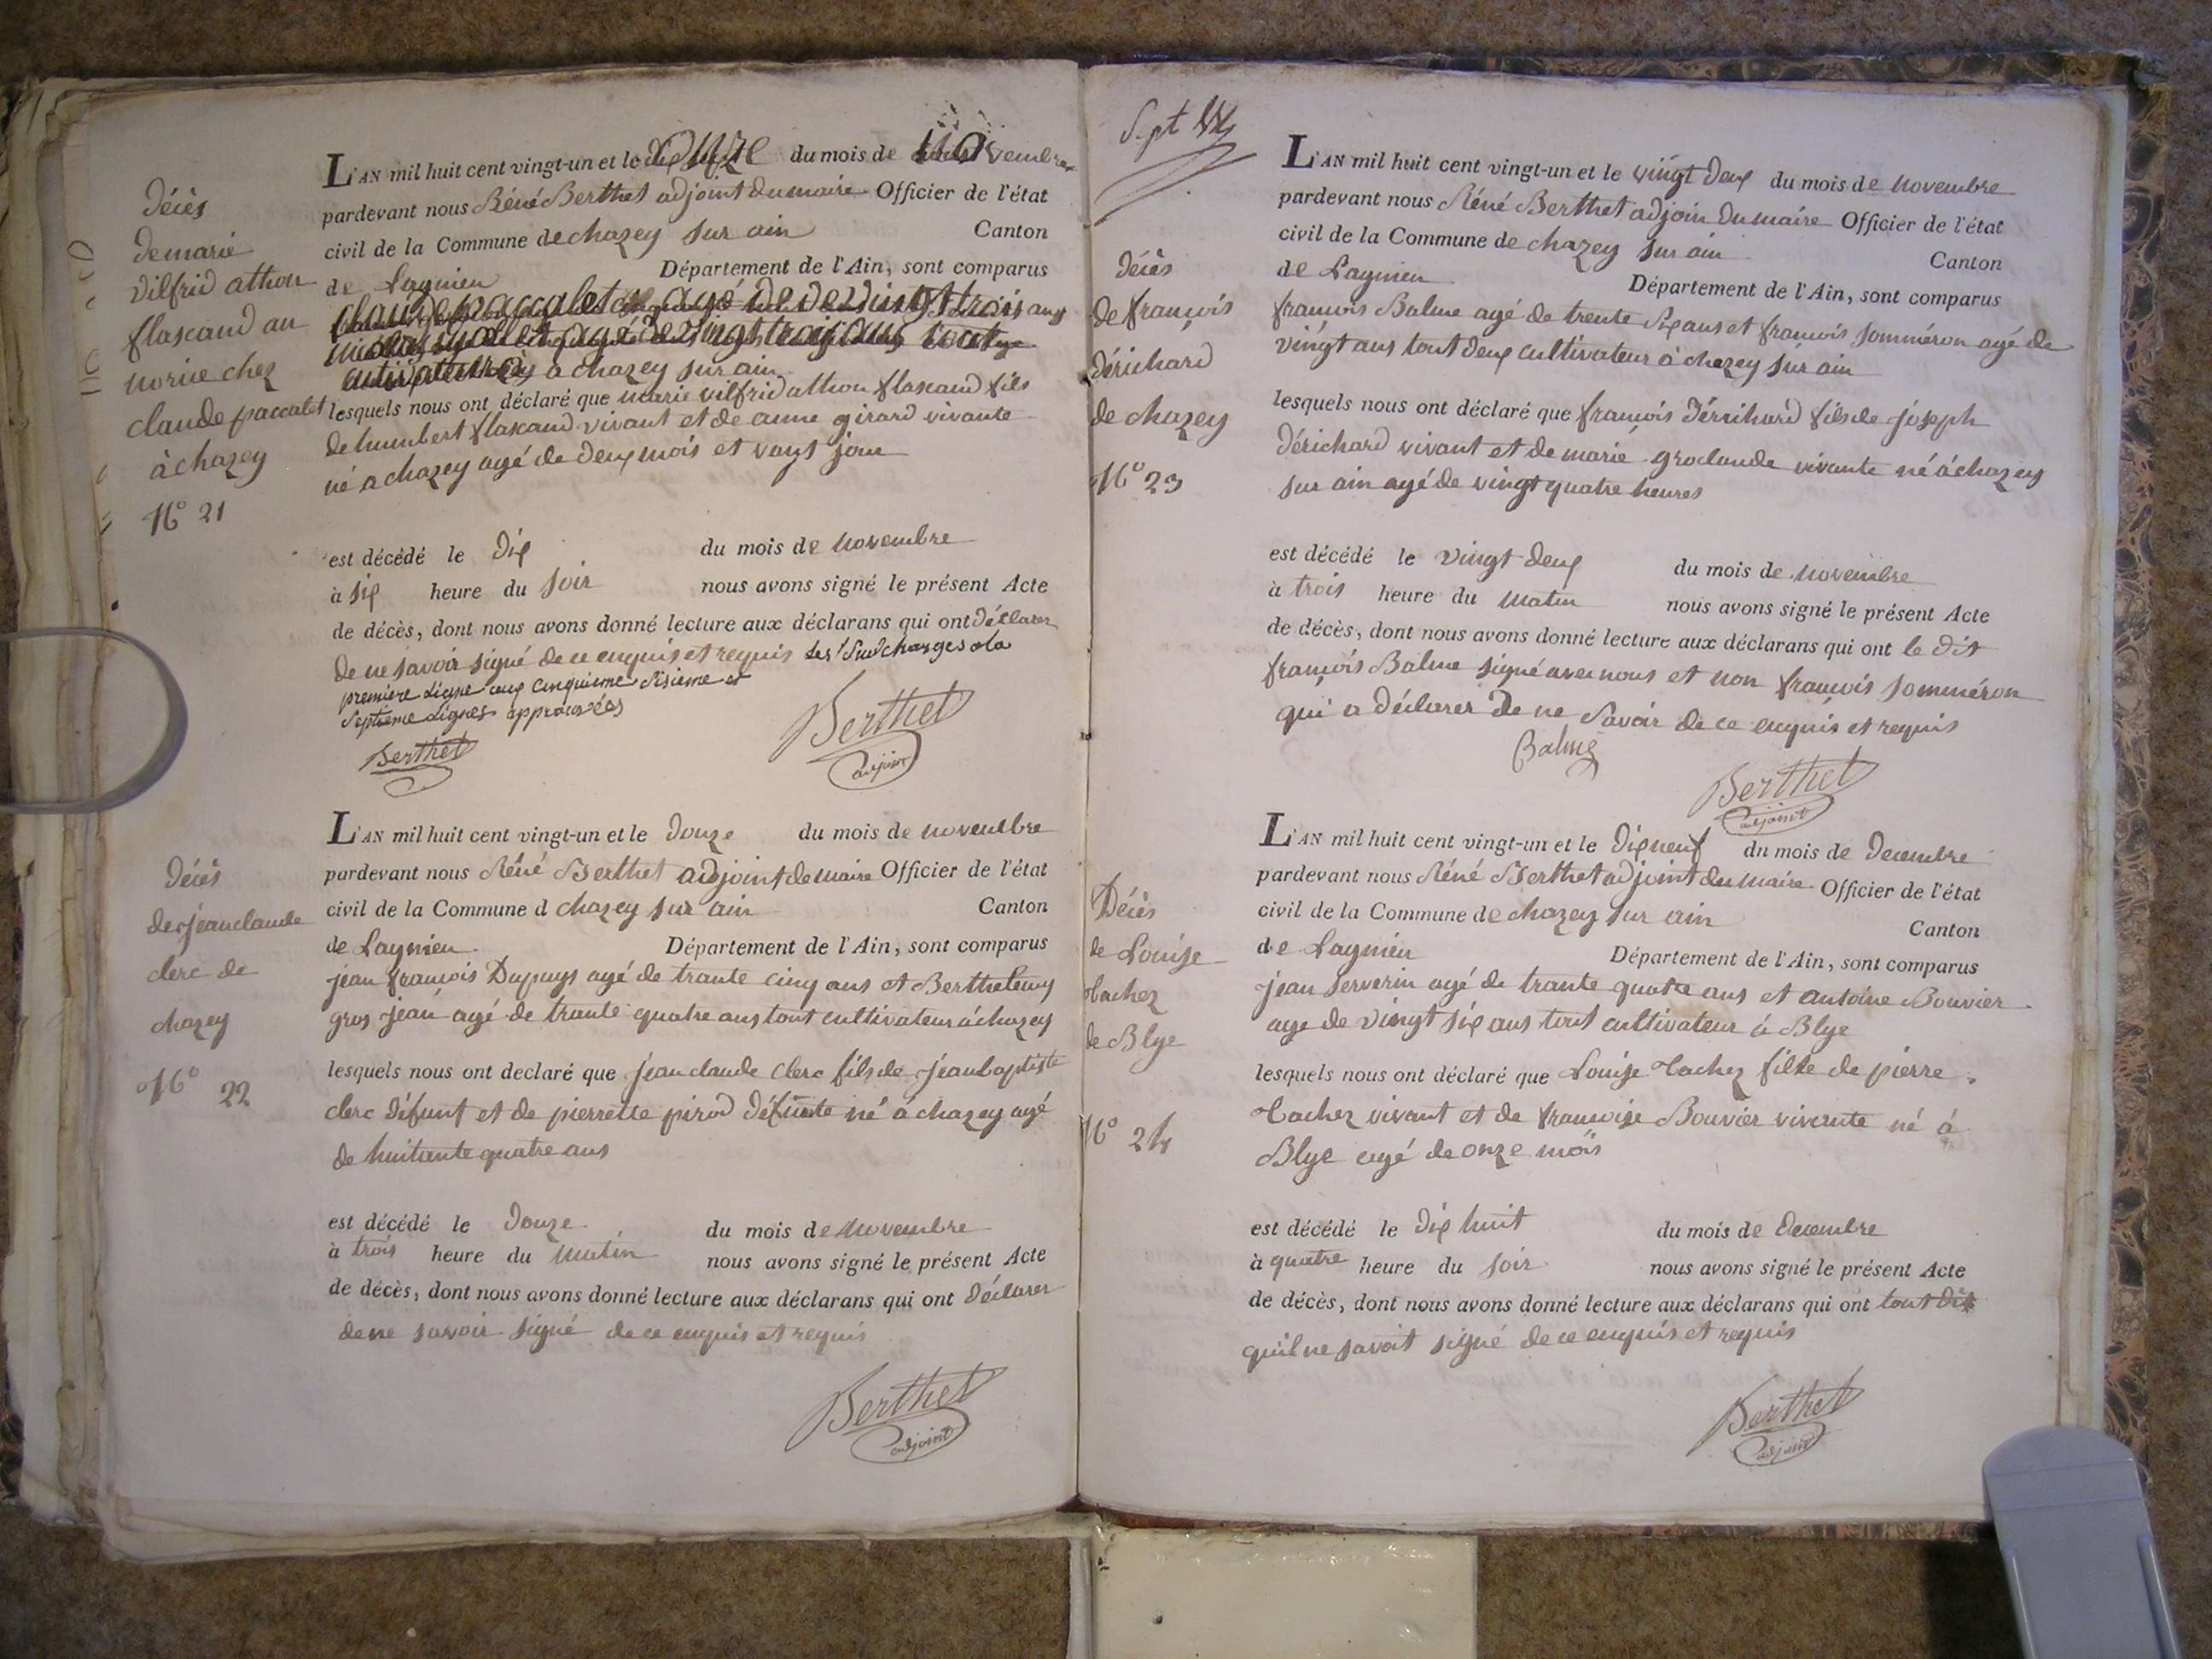 Décès
de marie
vilfrid athon
flascand au
norice chez
claude paccalet
à chazey
N° 21
L'AN mil huit cent vingt-un et le onze du mois de novembre
pardevant nous Réné Berthet adjoint du maire Officier de l'état
civil de la Commune de chazey sur ain Canton
de Lagnieu Département de l'Ain, sont comparus
claude paccalet agé de vingt trois ans
agé de vingt trois ans tout
cultivateur à chazey sur ain
lesquels nous ont déclaré que marie vilfrid athon flascand fils
de humbert flascand vivant et de anne girard vivante
né a chazey agé de deux mois et vayt jour
est décédé le dix du mois de novembre
à six heure du soir nous avons signé le présent Acte
de décès, dont nous avons donné lecture aux déclarans qui ont déclarer
de ne savoir signé de ce enquis et requis les surcharges a la
premiere ligne aux cinquieme sisieme et
septieme lignes approuvées
Berthet
Berthet
adjoint
Décès
de jean claude
clerc de
chazey
N° 22
L'AN mil huit cent vingt-un et le douze du mois de novembre
pardevant nous Réné Berthet adjoint de maire Officier de l'état
civil de la Commune d chazey sur ain Canton
de Lagnieu Département de l'Ain, sont comparus
jean françois Dupuys agé de trante cinq ans et Berthelemy
gros jean agé de trante quatre ans tout cultivateur à chazey
lesquels nous ont declaré que jean claude clerc fils de jean baptiste
clerc défunt et de pierrette pirod défunte né à chazey agé
de huitante quatre ans
est décédé le douze du mois de novembre
à trois heure du matin nous avons signé le présent Acte
de décès, dont nous avons donné lecture aux déclarans qui ont déclarer
de ne savoir signé de ce enquis et requis
Berthet
adjoint
Sept
Décès
de françois
dérichard
de chazey
N° 23
L'AN mil huit cent vingt-un et le vingt deux du mois de novembre
pardevant nous Réné Berthet adjoin du maire Officier de l'état
civil de la Commune de chazey sur ain Canton
de Lagnieu Département de l'Ain, sont comparus
françois Balme agé de trente six ans et françois sommeron agé de
vingt ans tout deux cultivateur à chazey sur ain
lesquels nous ont déclaré que françois dérrihard fils de joseph
dérichard vivant et de marie groclaude vivante né à chazey
sur ain agé de vingt quatre heures
est décédé le vingt deux du mois de novembre
à trois heure du matin nous avons signé le présent Acte
de décès, dont nous avons donné lecture aux déclarans qui ont le dit
françois Balme signé avec nous et non françois sommeron
qui a déclarer de ne savoir de ce enquis et requis
Balme
Berthet
adjoint
Décès
de Louise
tachez
de Blye
N° 24
L'AN mil huit cent vingt-un et le dix neuf du mois de decembre
pardevant nous Réné Berthet adjoint du maire Officier de l'état
civil de la Commune de chazey sur ain Canton
de Lagnieu Département de l'Ain, sont comparus
jean serverin agé de trante quatre ans et antoine Bouvier
age de vingt six ans tout cultivateur à Blye
lesquels nous ont déclaré que Louise tachez fille de pierre
tachez vivant et de françoise Bouvier vivante né à
Blye agé de onze mois
est décédé le dix huit du mois de decembre
à quatre heure du soir nous avons signé le présent Acte
de décès, dont nous avons donné lecture aux déclarans qui ont tout dit
quil ne savoit signé de ce enquis et requis
Berthet
adjoint